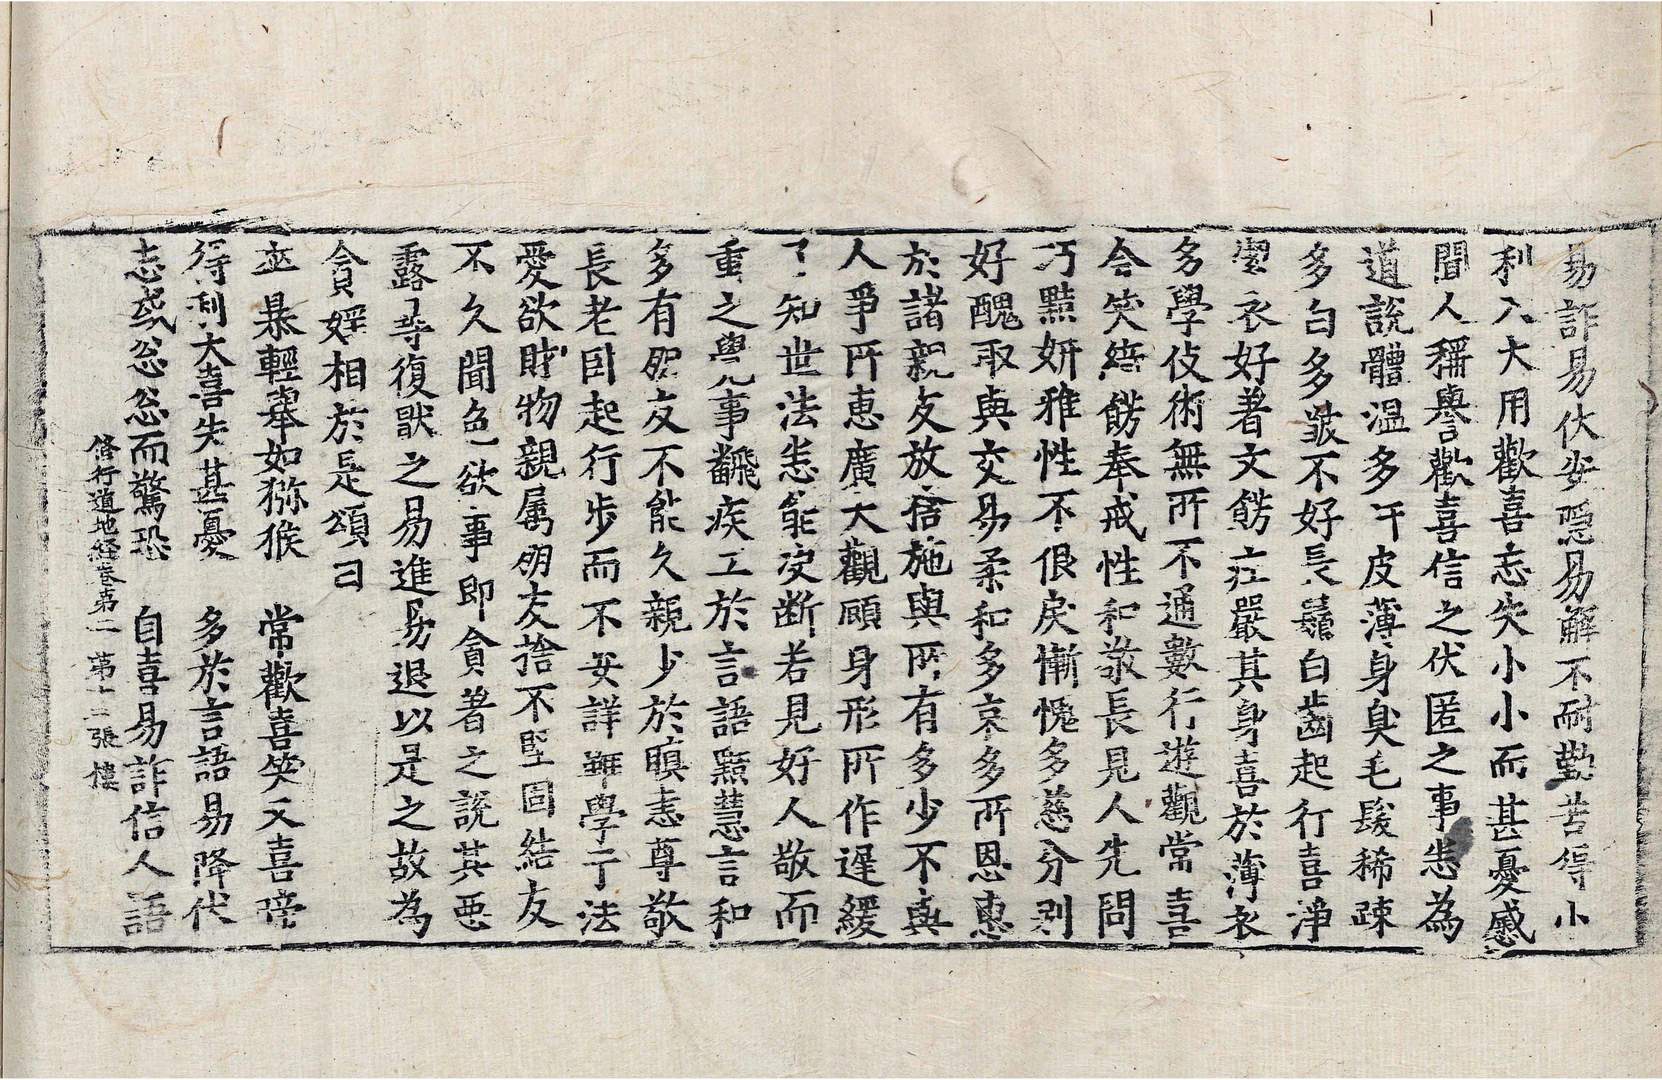 易詐易伏安隱易解不耐勤苦得小
利入大用歡喜忘失小小而甚憂慼
聞人稱譽歡喜信之伏匿之事悉為
道說體溫多汗皮薄身臭毛髮稀疎
多白多皺不好長鬚白齒起行喜淨
潔衣好著文餝莊嚴其身喜於薄衣
多學伎術無所不通數行遊觀常喜
含笑綺餝奉戒性和敬長見人先問
巧黠妍雅性不佷戾慚愧多慈分別
好醜取與交易柔和多哀多所恩惠
於諸親友放捨施與所有多少不與
人爭所惠廣大觀顧身形所作遲緩
了知世法悉能決斷若見好人敬而
重之學凡事翻疾工於言語黠慧言和
多有朋友不能久親少於瞋恚尊敬
長老臥起行步而不安詳雖學于法
愛欲財物親屬朋友捨不堅固結友
不久聞色欲事即貪著之說其惡
露尋復厭之易進易退以是之故為
貪婬相於是頌曰
卒暴輕舉如獼猴　常歡喜笑又喜啼
得利大喜失甚憂　多於言語易降伏
志或忩忩而驚恐　自喜易詐信人語
脩行道地經卷第二　第十二張　樓